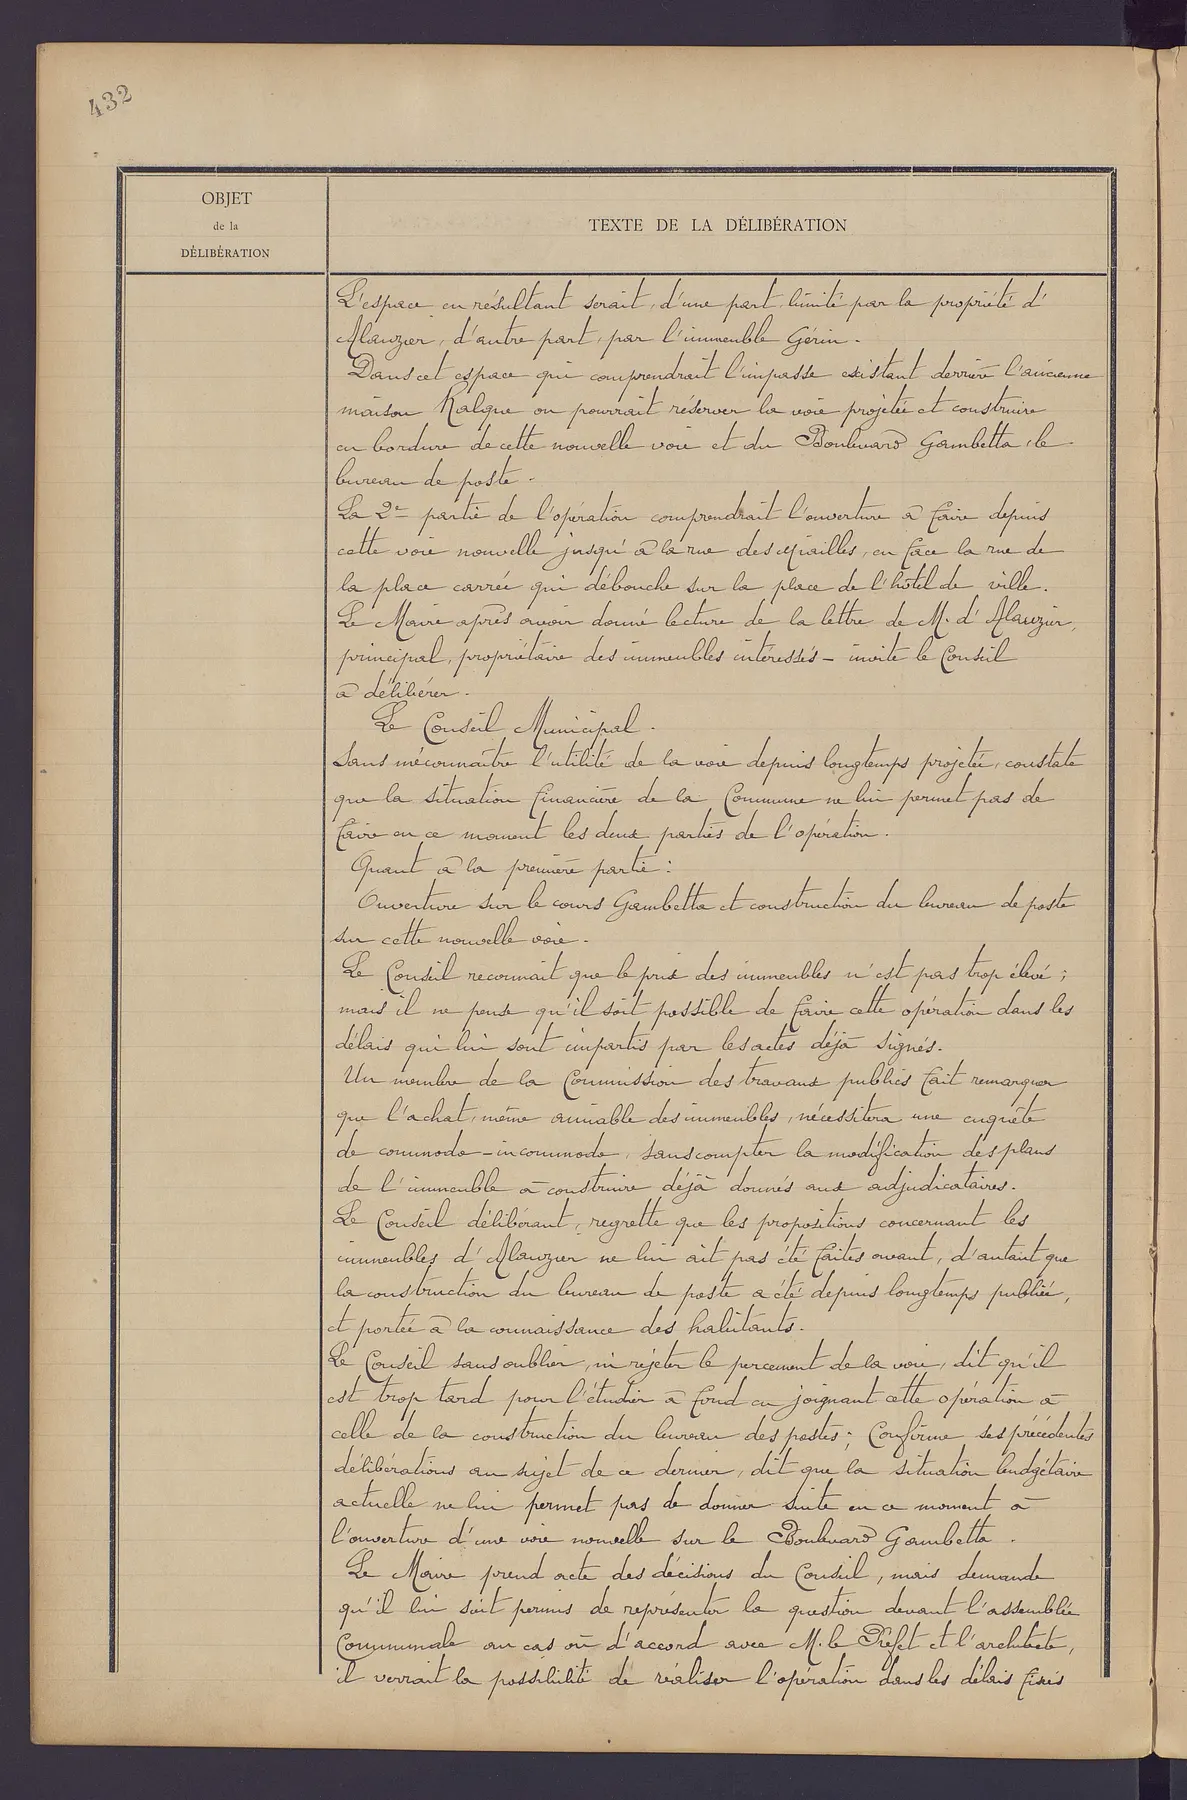 432
OBJET
de la
DÉLIBÉRATION
TEXTE DE LA DÉLIBÉRATION
L'espace en résultant serait, d'une part, limité par la propriété d'
Alauzier, d'autre part, par l'immeuble Gérin.
Dans cet espace qui comprendrait l'impasse existant derrière l'ancienne
maison on pourrait réserver la voie projetée et construire
en bordure de cette nouvelle voie et du Boulevard Gambetta, le
bureau de poste.
La 2e partie de l'opération comprendrait l'ouverture à faire depuis
cette voie nouvelle jusqu'à la rue des, en face la rue de
la place carrée qui débouche sur la place de l'hôtel de ville.
Le Maire après avoir donné lecture de la lettre de M. d'Alauzier,
principal, propriétaire des immeubles intéressés - invite le Conseil
à délibérer.
Le Conseil Municipal.
Sans méconnaître l'utilité de la voie depuis longtemps projetée, constate
que la situation financière de la Commune ne lui permet pas de
faire en ce moment les deux parties de l'opération.
Quant à la première partie :
Ouverture sur le cours Gambetta et construction du bureau de poste
sur cette nouvelle voie.
Le Conseil reconnait que le prix des immeubles n'est pas trop élevé ;
mais il ne pense qu'il soit possible de faire cette opération dans les
délais qui lui sont impartis par les actes déjà signés.
Un membre de la Commission des travaux publics fait remarquer
que l'achat, même amiable des immeubles, nécessitera une enquête
de commodo-incommodo, sans compter la modification des plans
de l'immeuble à construire déjà donnés aux adjudicataires.
Le Conseil délibérant, regrette que les propositions concernant les
immeubles d'Alauzier ne lui ait pas été faites avant, d'autant que
la construction du bureau de poste a été depuis longtemps publiée,
et portée à la connaissance des habitants.
Le Conseil sans oublier, ni rejeter le percement de la voie, dit qu'il
est trop tard pour l'étudier à fond en joignant cette opération à
celle de la construction du bureau des postes ; Confirme ses précédentes
délibérations au sujet de ce dernier, dit que la situation budgétaire
actuelle ne lui permet pas de donner suite en ce moment à
l'ouverture d'une voie nouvelle sur le Boulevard Gambetta.
Le Maire prend acte des décisions du Conseil, mais demande
qu'il lui soit permis de représenter la question devant l'assemblée
Communale au cas où d'accord avec M. le Préfet et l'architecte,
il verrait la possibilité de réaliser l'opération dans les délais fixés